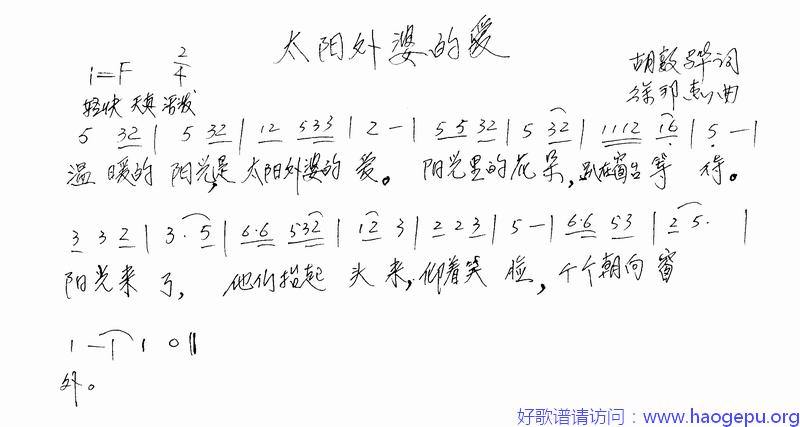 太阳外婆的爱
1=F 2/4
胡敦骅词
徐邦杰曲
轻快 天真 活泼
5 32 | 5 32 | 12 533 | 2 - | 55 32 | 5 32 | 1112 16 | 5 - |
温暖的 阳光,是 太阳外婆的 爱。 阳光里的花朵,趴在窗台等 待。
3 3 2 | 3. 5 | 6.6 532 | 12 3 | 2 2 3 | 5 - | 6.6 53 | 2 5. |
阳光来 了, 他们抬起 头 来,仰着笑 脸, 个个朝向 窗
1 - | 1 0 ‖
外。
好歌谱请访问：www.haogepu.org